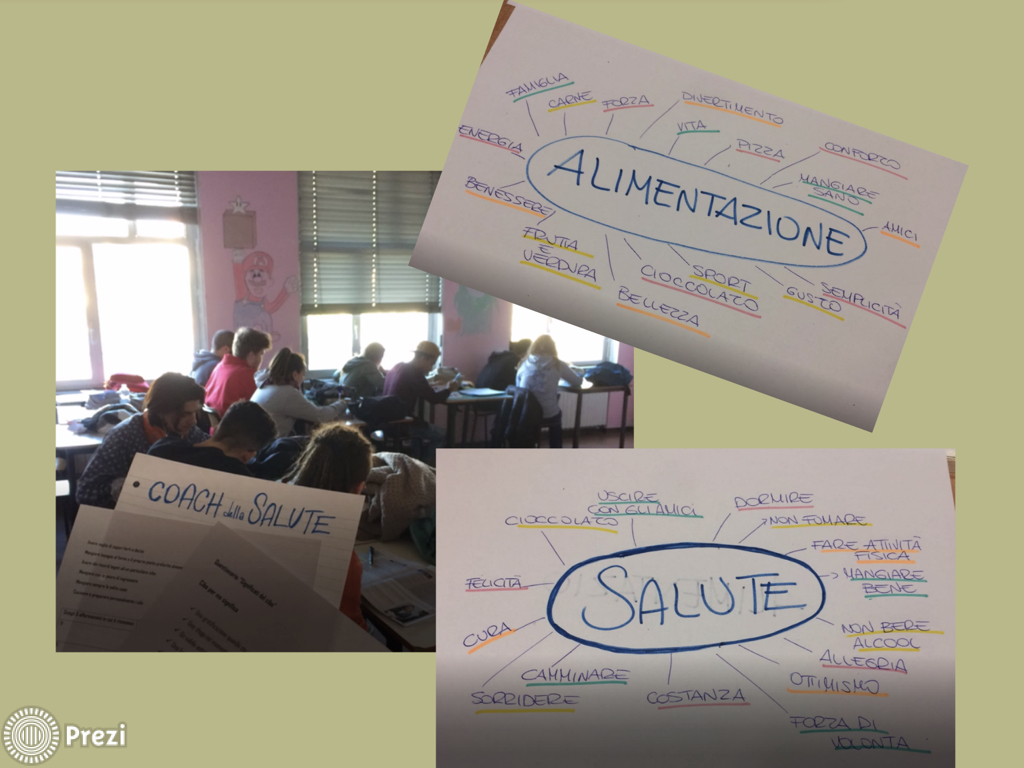 FAMIGLIA
CARNE
FORZA
DIVERTIMENTO
VITA
PIZZA
CONFORZO
MANGIARE
SANO
AMICI
ENERGIA
BENESSERE
ALIMENTAZIONE
FRUTTA
E
VERDURA
BELLEZZA
CIOCCOLATO
SPORT
GUSTO
SEMPLICITÀ
COACH della SALUTE
USCIRE
CON GLI AMICI
DORMIRE
CIOCCOLATO
NON FUMARE
FARE ATTIVITÀ
FISICA
FELICITÀ
MANGIARE
BENE
SALUTE
CURA
NON BERE
ALCOOL
ALLEGRIA
CAMMINARE
OTTIMISMO
SORRIDERE
COSTANZA
FORZA DI
VOLONTÀ
Prezi